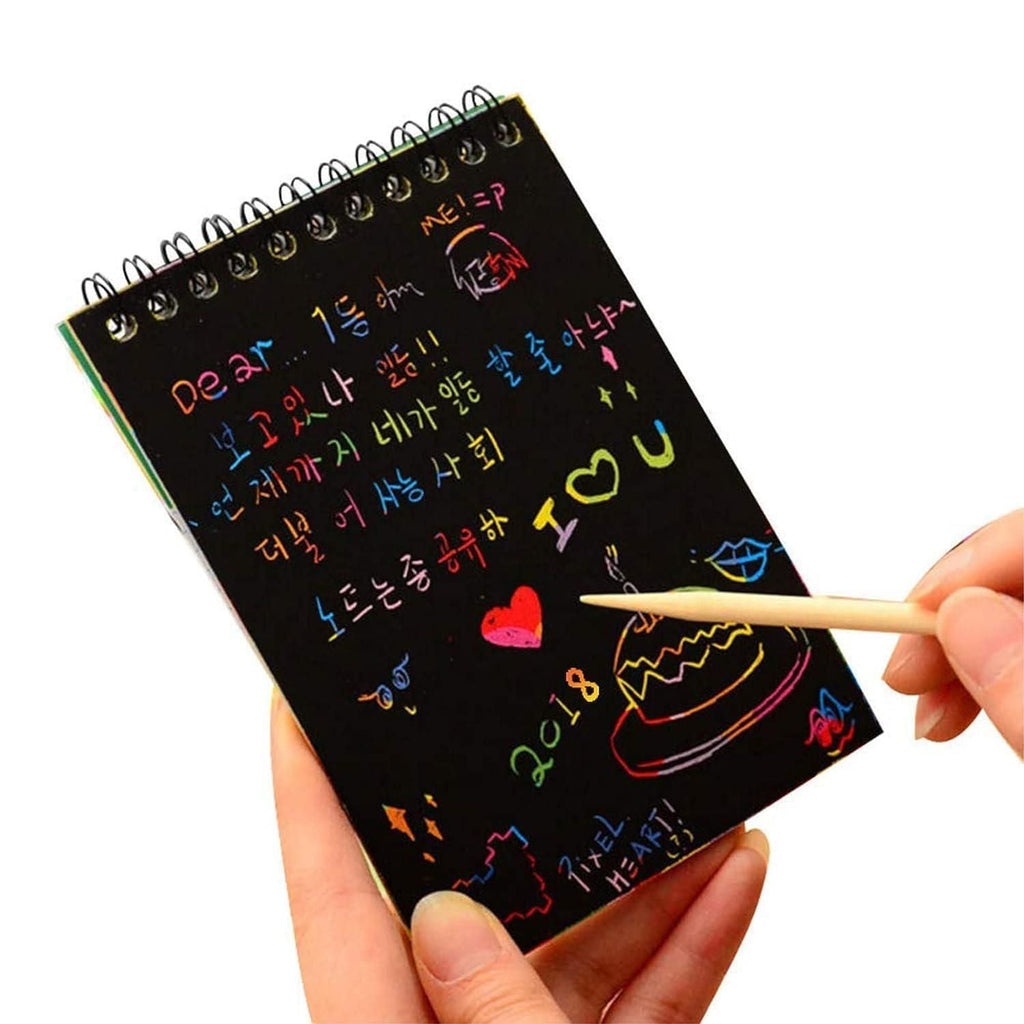 ME! =P
Dear... 1등
보고있냐 일등!!
언제까지 네가 일등 할 줄 아냐~
더불어 사능 사회
노드는 중 공유하
I ♡ U
2018
PIXEL
HEART!